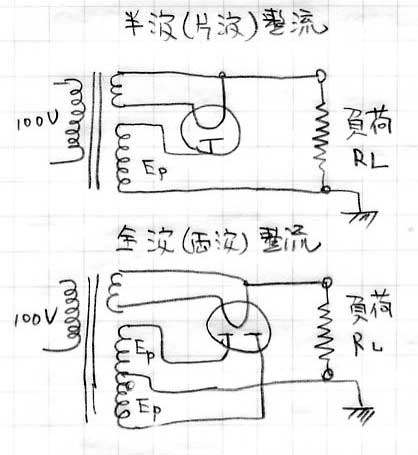 半波(片波)整流
100V
Ep
負荷
RL
全波(両波)整流
100V
Ep
Ep
負荷
RL